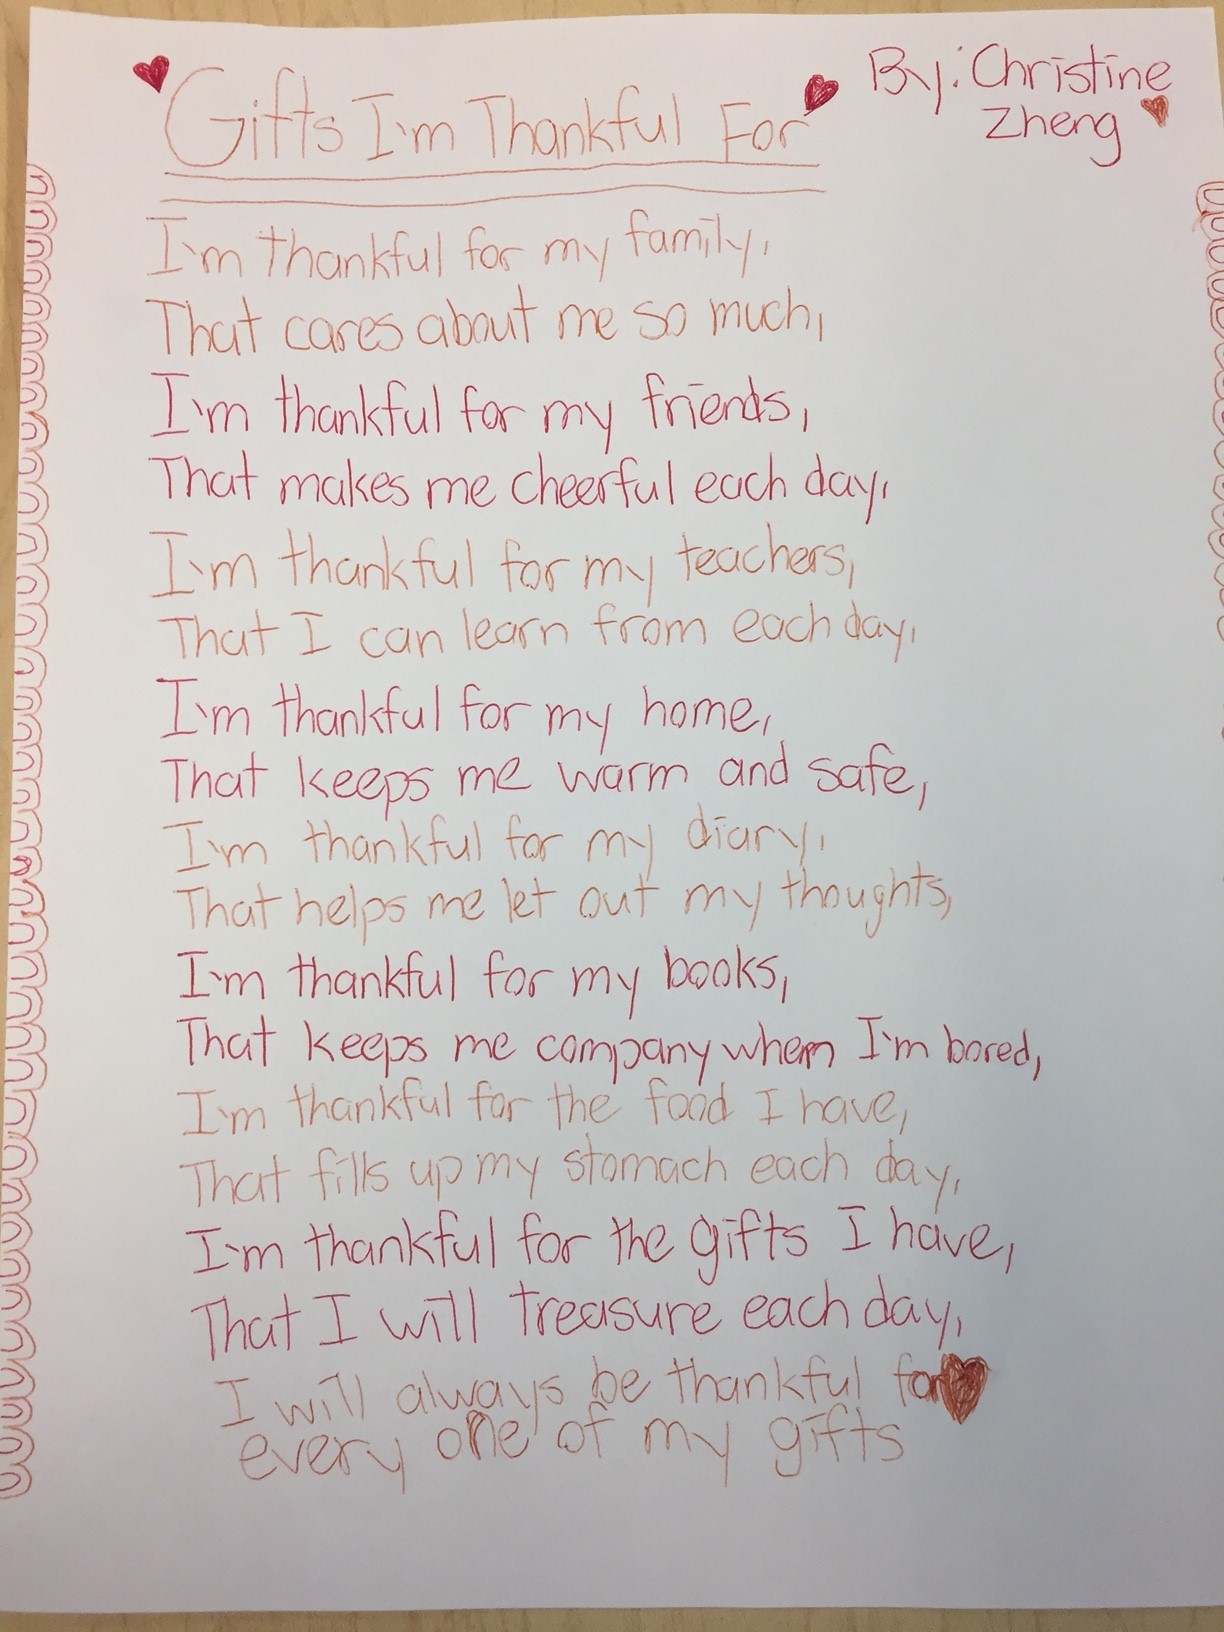 Gifts I'm Thankful For
By: Christine
Zheng
I'm thankful for my family,
That cares about me so much,
I'm thankful for my friends,
That makes me cheerful each day,
I'm thankful for my teachers,
That I can learn from each day,
I'm thankful for my home,
That keeps me warm and safe,
I'm thankful for my diary,
That helps me let out my thoughts,
I'm thankful for my books,
That keeps me company when I'm bored,
I'm thankful for the food I have,
That fills up my stomach each day,
I'm thankful for the gifts I have,
That I will treasure each day,
I will always be thankful for
every one of my gifts